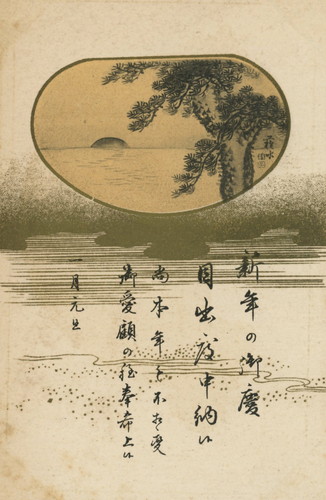 新年の御慶
目出度申納候
尚本年も不相変
御愛顧の程奉希上候
一月元旦